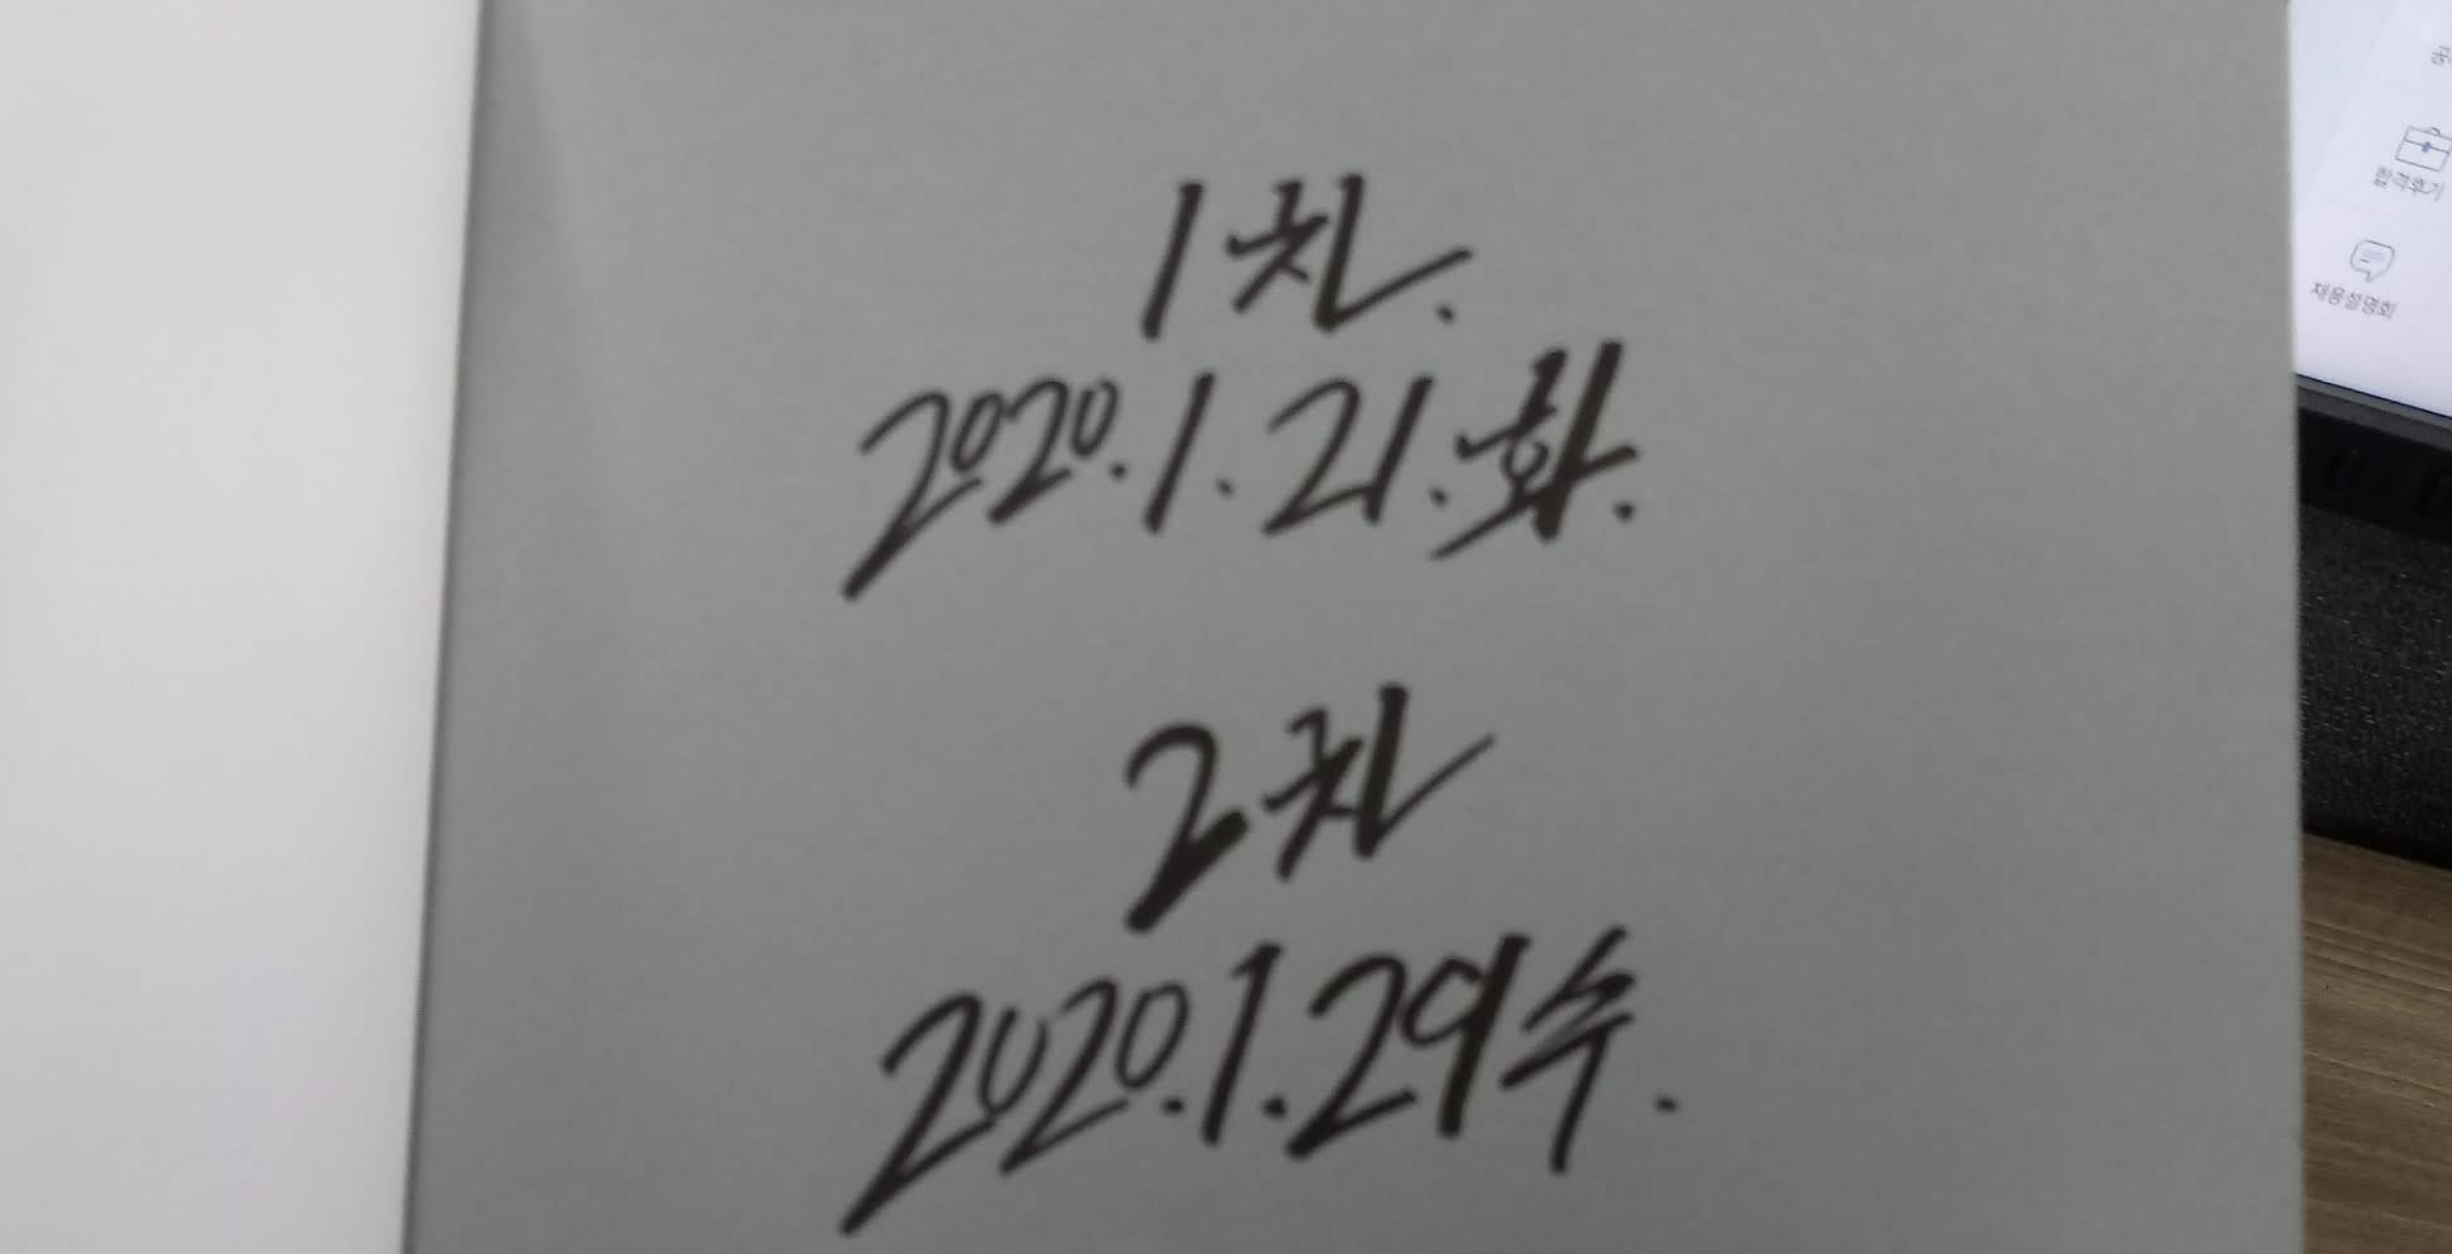 1차.
2020.1.21.화.
2차
2020.1.29수.
합격후기
채용설명회